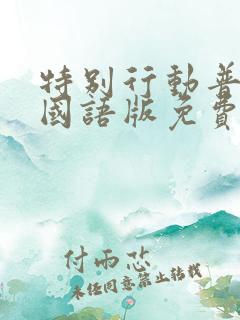 特别行動普
國語版免費
付雨芯
未经同意禁止转载